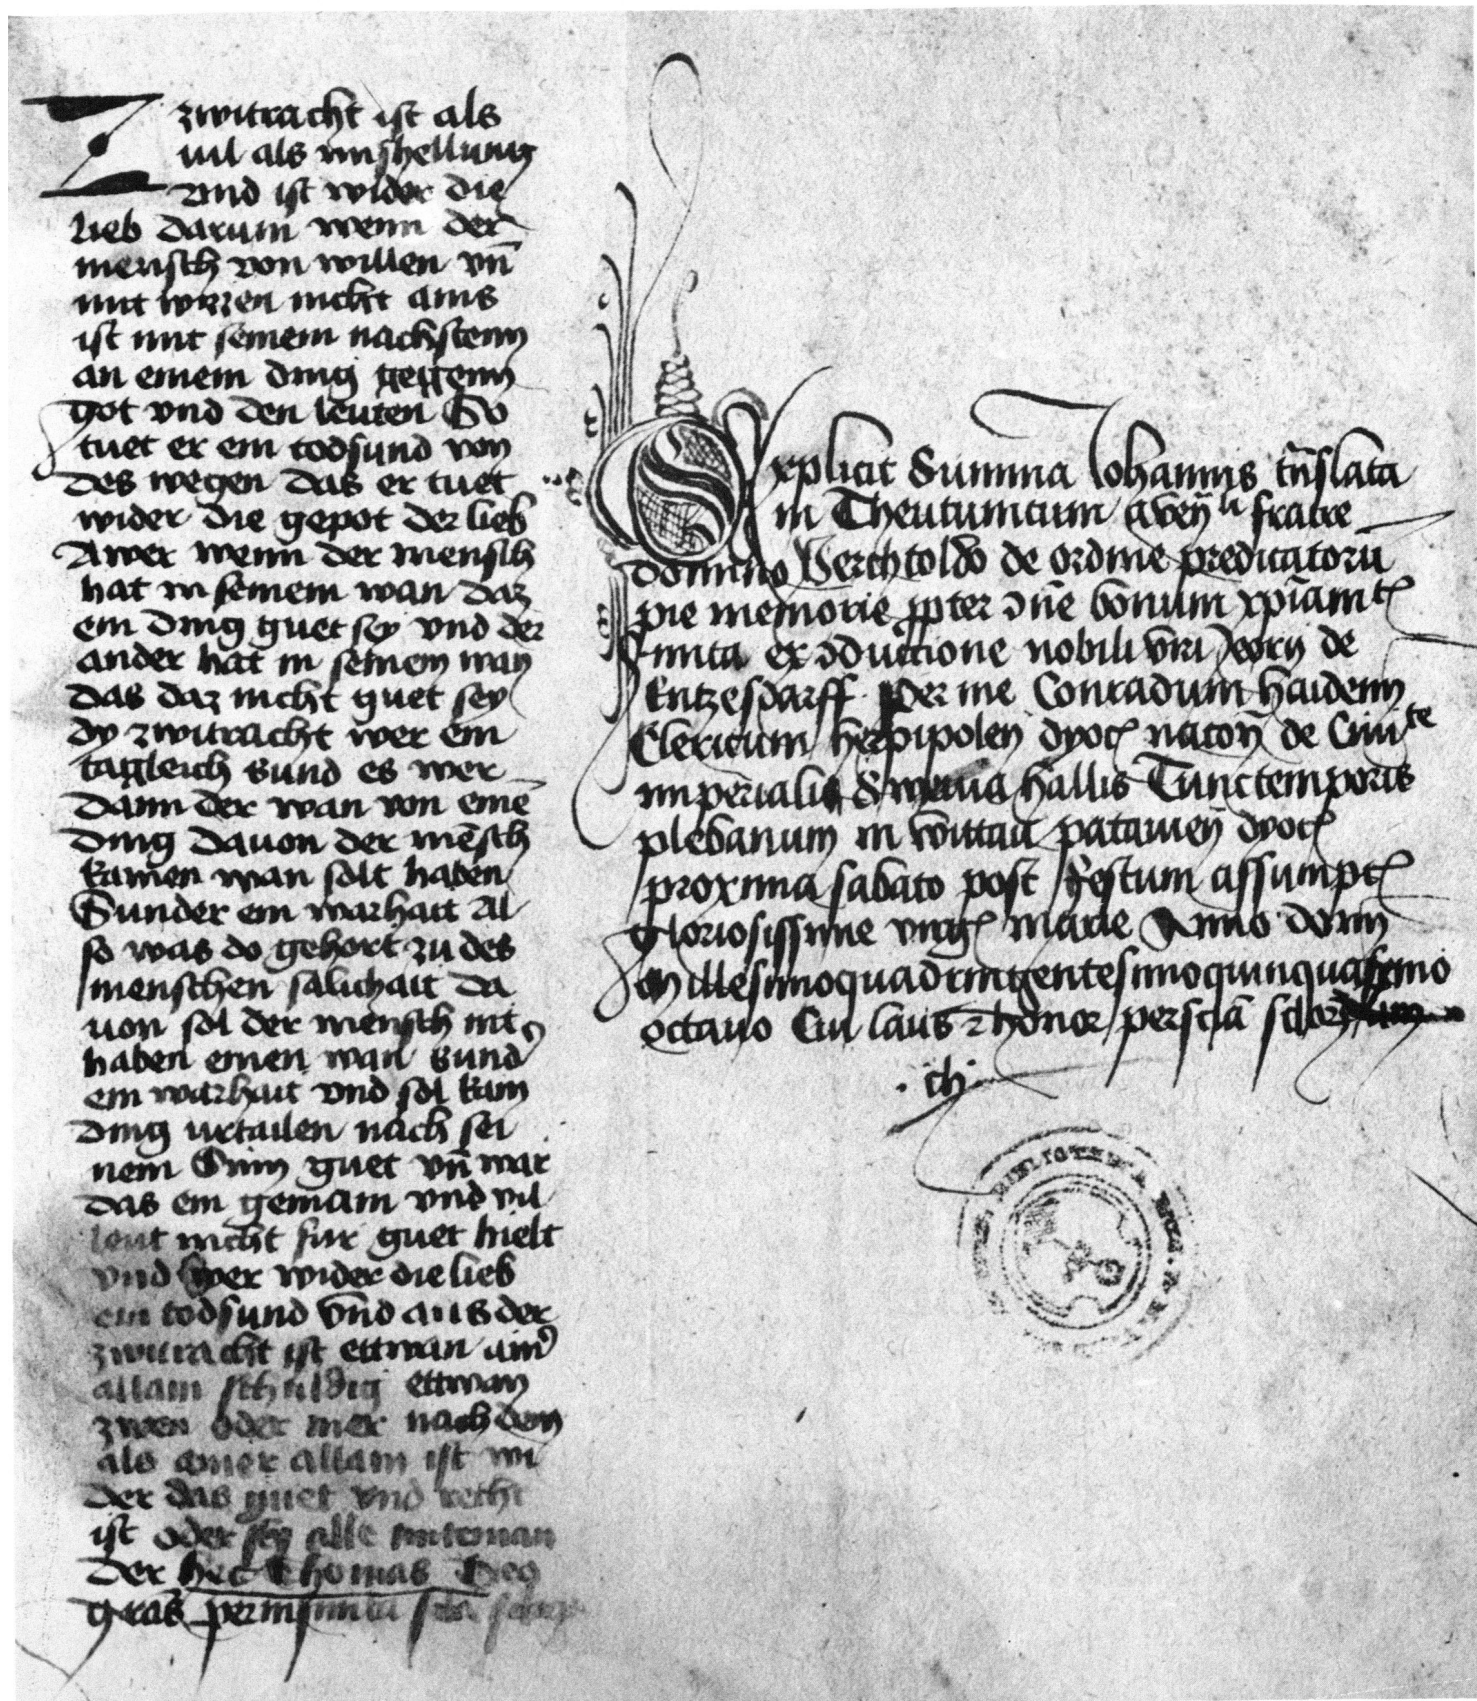 zwitracht ist als
uil als mishellung
vnd ist wider die
lieb darum wenn der
mensch von willen vn̄
mit wizzen nicht ains
ist mit seinem nachstenn
an einem ding gegenn
got vnd den leuten So
tuet er ein todsund von
des wegen das er tuet
wider die gepot der lieb
Awer wenn der mensch
hat in seinem wan daz
ein ding guet sey vnd der
ander hat in seinem wan
das daz nicht guet sey
dy zwitracht wer ein
tagleich sund es wer
dann der wan von eine̅
ding dauon der me̅sch
kainen wan solt haben
Sunder ein warhait Al
so was do gehort zu des
menschen salichait da
uon sol der mensch nit
haben einen wan sund̾
ein warhait vnd sol kain
ding urtailen nach sei
nem Sinn guet vn̄ war
das ein gemain vnd vil
leut nicht fur guet hielt
vnd wer wider die lieb
ein todsund vnd aus der
zwitracht ist ettwan ain̾
allain schuldig ettwan
zwen oder mer nach dem
als ainer allain ist wi
der das guet vnd recht
ist oder sy alle mitainan
der hec Thomas Deo
gr̄as per infinita
Explicit Summa Iohannis tn̄slata
in Theutunicum a ven̄li fratre
domino Perchtoldo de ordine predicatoru̅
pie memorie
finita ex ꝯductione nobili viri Jeorij de
Entzesdarff per me Conradum haidenn
Clericum herbipolen̄ dyoc̄ nacōn̄ de Ciuite
imperialis Swewis hallis Tunc temporis
plebanum in patauien̄ dyoc̄
proxima sabato post festum assumpt̄
gloriosissime virḡ marie Anno domini
Millesimoquadringentesimoquinquagesimo
octauo Cui laus ⁊ honor per sc̄la sclor̄um
.ch.